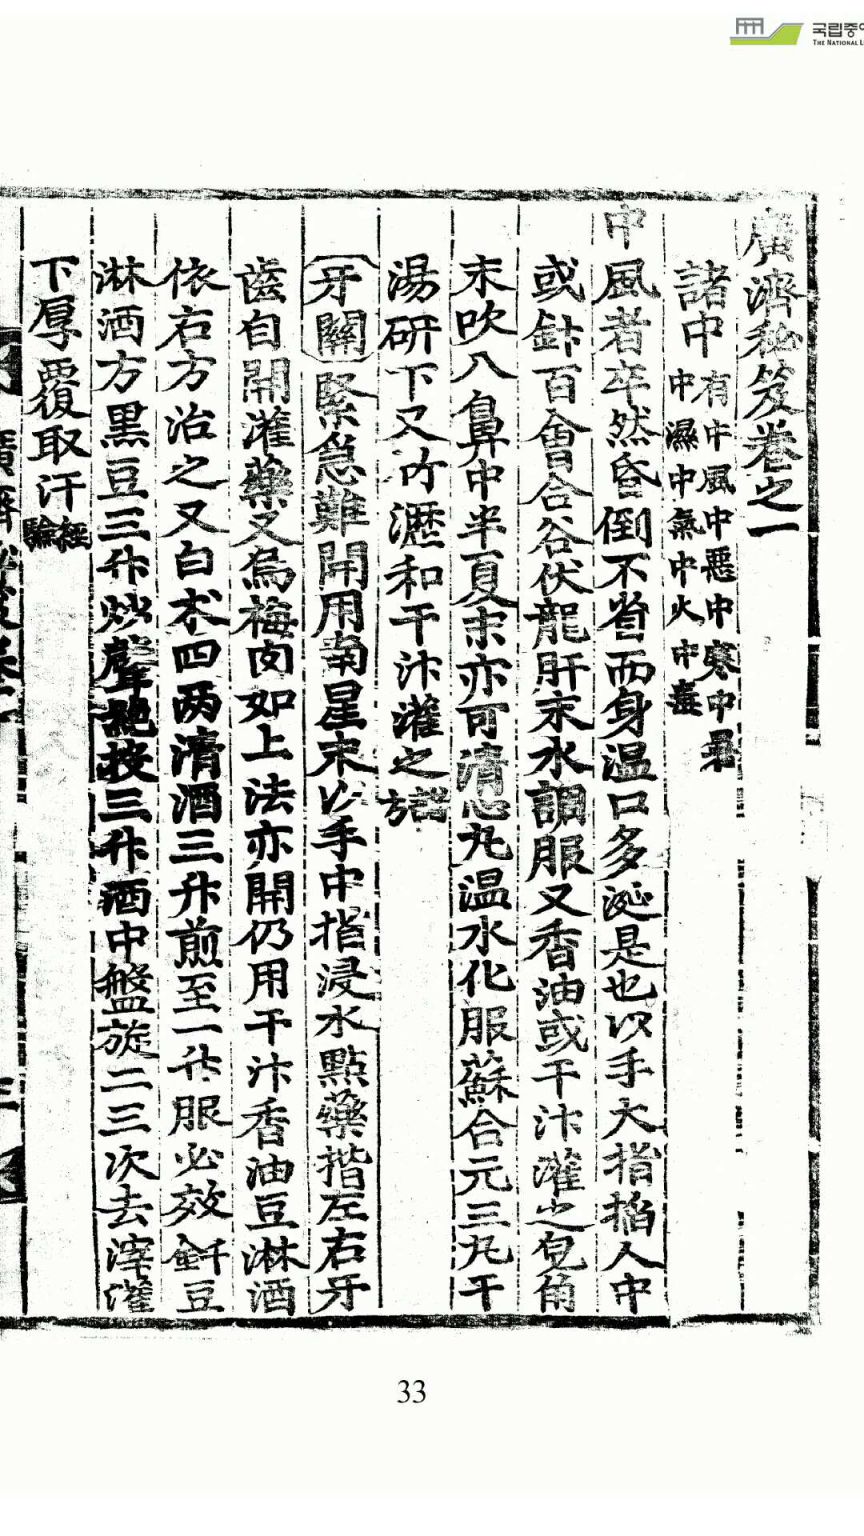 국립중
THE NATIONAL L
廣濟秘笈卷之一
諸中 有中風中惡中寒中暑中濕中氣中火中毒
中風者卒然昏倒不省而身温口多涎是也以手大指掐人中
或針百會合谷伏龍肝末水調服又香油或干汁灌之皂角
末吹入鼻中半夏末亦可清心丸温水化服蘇合元三丸干
湯研下又竹瀝和干汁灌之 諸方
牙關緊急難開用南星末以手中指浸水點藥揩左右牙
齒自開灌藥又烏梅肉如上法亦開仍用干汁香油豆淋酒
依右方治之又白朮四两清酒三升煎至一升服必效 豆
淋酒方黒豆三升炒聲絶投三升酒中盤旋二三次去滓灌
下厚覆取汗 經驗
33